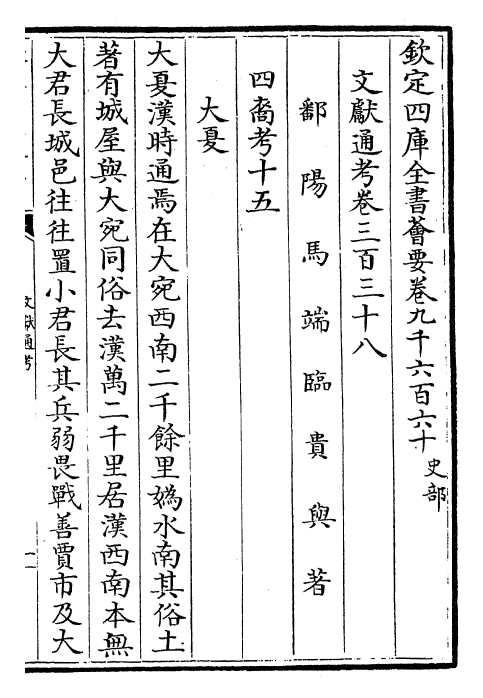 欽定四庫全書薈要卷九千六百六十
史部
文獻通考卷三百三十八
鄱陽馬端臨貴與著
四裔考十五
大夏
大夏漢時通焉在大宛西南二千餘里嬀水南其俗土
著有城屋與大宛同俗去漢萬二千里居漢西南本無
大君長城邑往往置小君長其兵弱畏戰善賈市及大
文獻通考